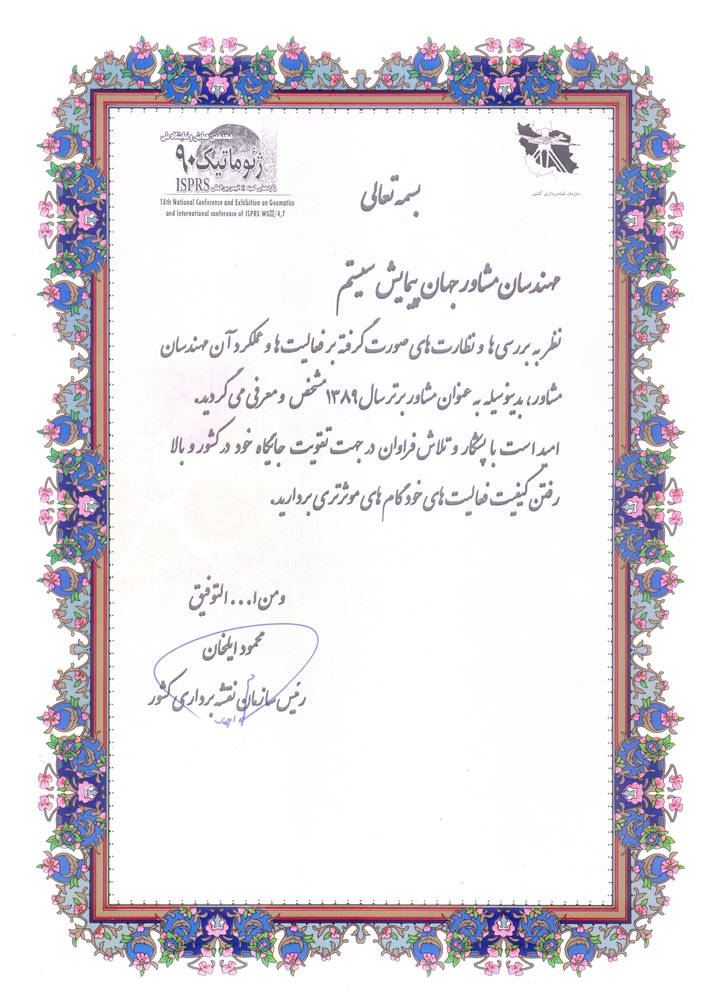 هجدهمین همایش و نمایشگاه ملی
ژئوماتیک ۹۰
ISPRS
18th National Conference and Exhibition on Geomatics
and international conference of ISPRS WGIII/4,7
سازمان نقشه‌برداری کشور
بسمه تعالی
مهندسان مشاور جهان پیمایش سیستم
نظر به بررسی ها و نظارت های صورت گرفته بر فعالیت ها و عملکرد آن مهندسان
مشاور، بدینوسیله به عنوان مشاور برتر سال ۱۳۸۹ مشخص و معرفی می گردید.
امید است با پشتکار و تلاش فراوان در جهت تقویت جایگاه خود در کشور و بالا
رفتن کیفیت فعالیت های خود گام های موثرتری بردارید.
و من ا... التوفیق
محمود ایلخان
رئیس سازمان نقشه برداری کشور